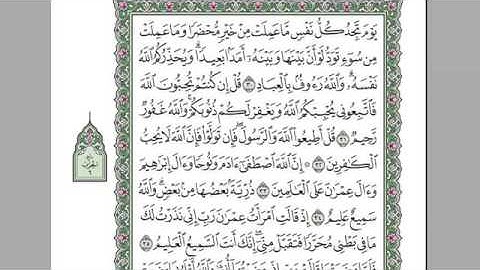 يَوْمَ تَجِدُ كُلُّ نَفْسٍ مَّا عَمِلَتْ مِنْ خَيْرٍ مُّحْضَرًا وَمَا عَمِلَتْ
مِن سُوٓءٍ تَوَدُّ لَوْ أَنَّ بَيْنَهَا وَبَيْنَهُۥٓ أَمَدَۢا بَعِيدًا ۗ وَيُحَذِّرُكُمُ ٱللَّهُ
نَفْسَهُۥ ۗ وَٱللَّهُ رَءُوفُۢ بِٱلْعِبَادِ ٣٠ قُلْ إِن كُنتُمْ تُحِبُّونَ ٱللَّهَ
فَٱتَّبِعُونِى يُحْبِبْكُمُ ٱللَّهُ وَيَغْفِرْ لَكُمْ ذُنُوبَكُمْ ۗ وَٱللَّهُ غَفُورٌ
رَّحِيمٌ ٣١ قُلْ أَطِيعُوا۟ ٱللَّهَ وَٱلرَّسُولَ ۖ فَإِن تَوَلَّوْا۟ فَإِنَّ ٱللَّهَ لَا يُحِبُّ
ٱلْكَٰفِرِينَ ٣٢ إِنَّ ٱللَّهَ ٱصْطَفَىٰٓ ءَادَمَ وَنُوحًا وَءَالَ إِبْرَٰهِيمَ
وَءَالَ عِمْرَٰنَ عَلَى ٱلْعَٰلَمِينَ ٣٣ ذُرِّيَّةَۢ بَعْضُهَا مِنۢ بَعْضٍ ۗ وَٱللَّهُ
سَمِيعٌ عَلِيمٌ ٣٤ إِذْ قَالَتِ ٱمْرَأَتُ عِمْرَٰنَ رَبِّ إِنِّى نَذَرْتُ لَكَ
مَا فِى بَطْنِى مُحَرَّرًا فَتَقَبَّلْ مِنِّىٓ ۖ إِنَّكَ أَنتَ ٱلسَّمِيعُ ٱلْعَلِيمُ ٣٥